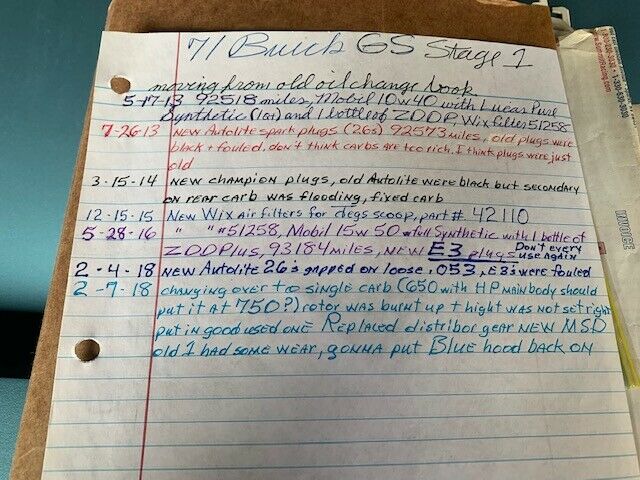 71 Buick GS Stage 1
moving from old oil change book
5-17-13 92518 miles, Mobil 10w40 with Lucas Pure
Synthetic (1qt) and 1 bottle of ZDDP, Wix filter 51258
7-26-13 NEW Autolite spark plugs (26s) 92573 miles, old plugs were
black + fouled. don't think carbs are too rich. I think plugs were just
old
3-15-14 NEW champion plugs, old Autolite were black but secondary
on rear carb was flooding, fixed carb
12-15-15 New Wix air filters for degs scoop, part # 42110
5-28-16 " " "#51258, Mobil 15w50 full Synthetic with 1 bottle of
ZDDPlus, 93184 miles, NEW E3 plugs Don't every use again
2-4-18 NEW Autolite 26's gapped on loose .053, E3's were fouled
2-7-18 changing over to single carb (650 with HP main body should
put it at 750?) rotor was burnt up thight was not set right
put in good used one Replaced distribor gear NEW MSD
old 1 had some wear, gonna put Blue hood back on
INVOICE